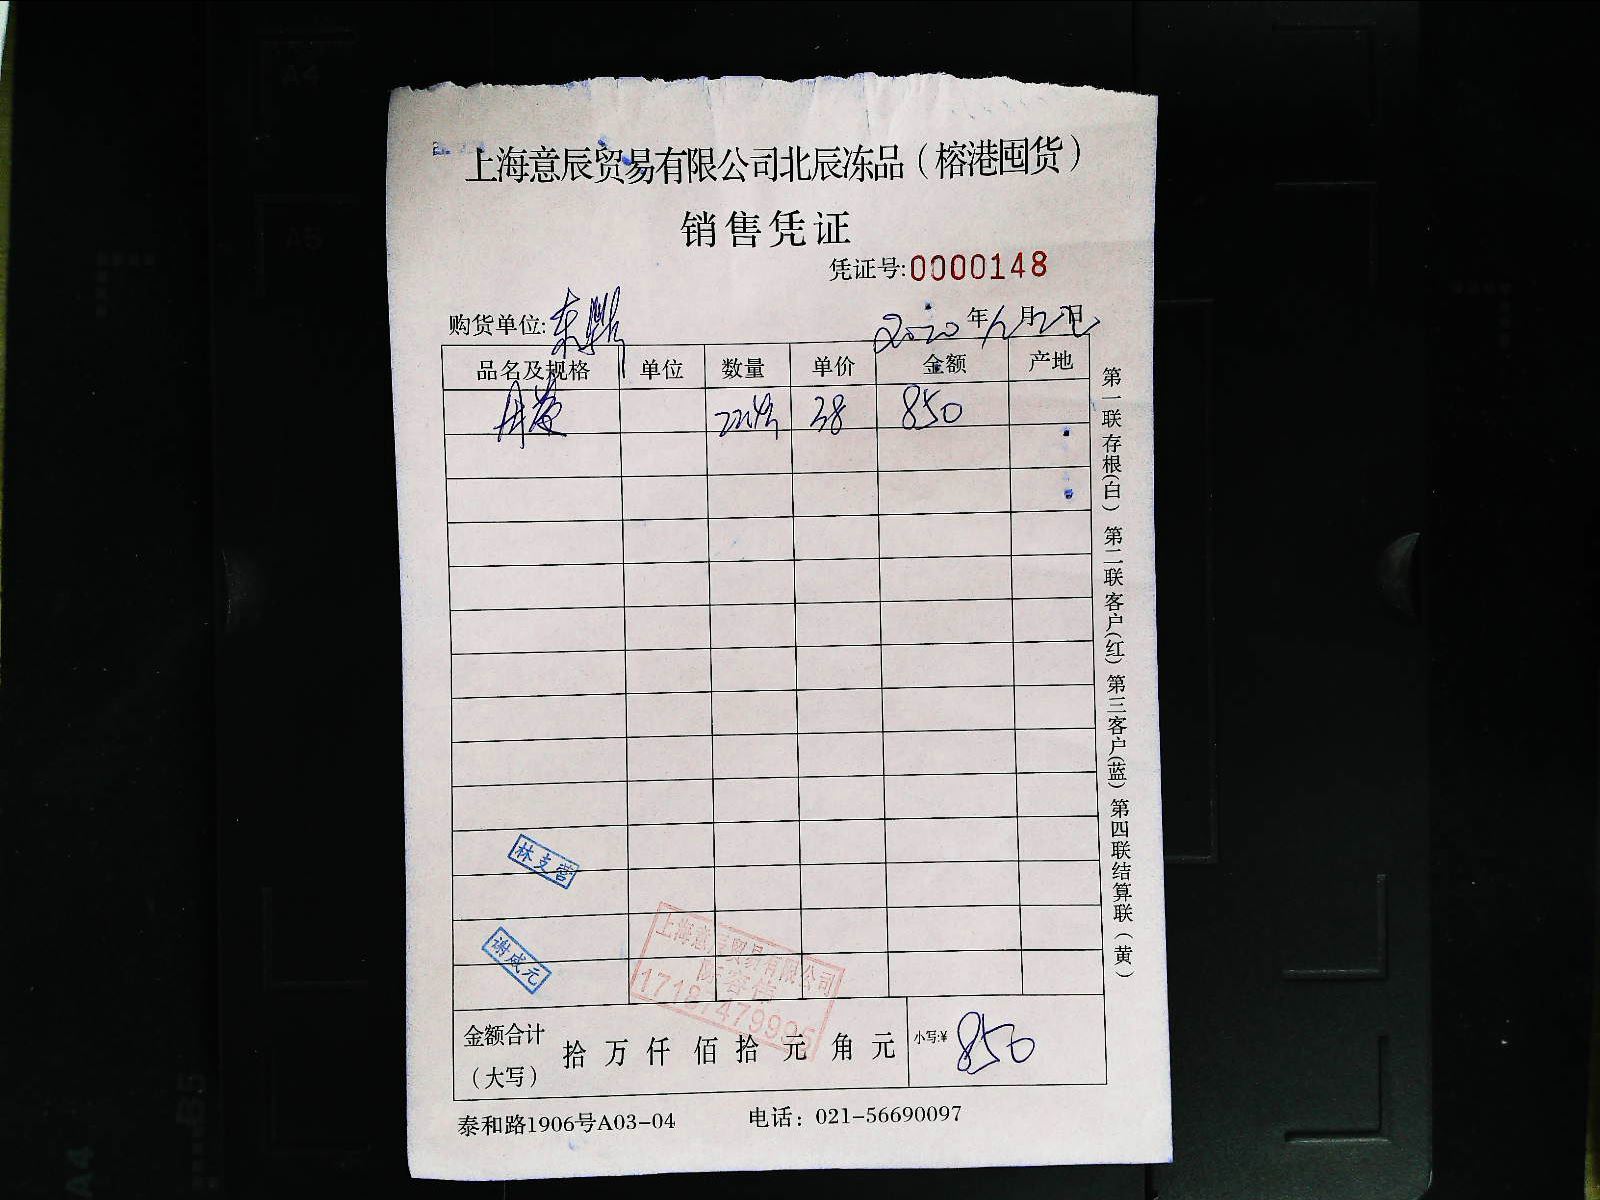 上海意辰贸易有限公司北辰冻品（榕港囤货）
销售凭证
凭证号:0000148
购货单位:东
2020年 月 日
品名及规格 单位 数量 单价 金额 产地
38 850
林支营
谢咸元
上海意辰贸易有限公司
金额合计（大写） 拾 万 仟 佰 拾 元 角 元 小写:¥ 850
泰和路1906号A03-04 电话：021-56690097
第一联存根(白) 第二联客户(红) 第三客户(蓝) 第四联结算联（黄）
A4
A5
B5
A4